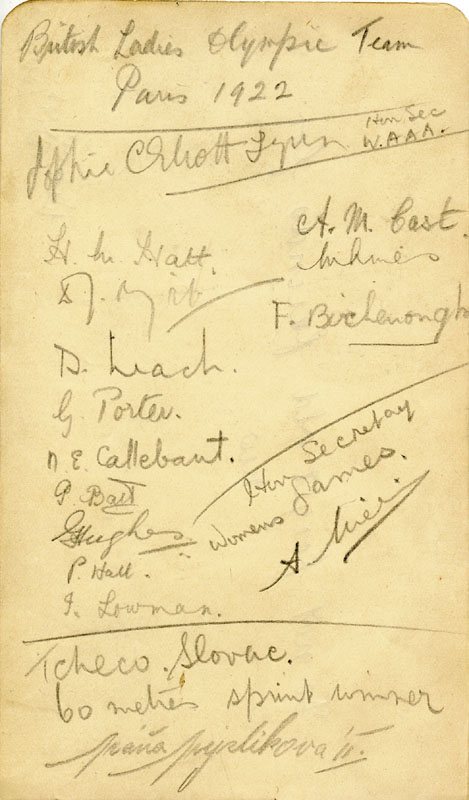 British Ladies Olympic Team
Paris 1922
Sophie C Elliott Lynn Hon Sec
W.A.A.A.
A. M. Cast.
H. M. Hatt.
F. Birchenough
D. Leach.
G. Porter.
N E. Callebaut.
P. Bast
G Hughes
P. Hall.
I. Lowman.
Hon Secretary
Womens James.
A
Tcheco. Slovac.
60 metres sprint winner